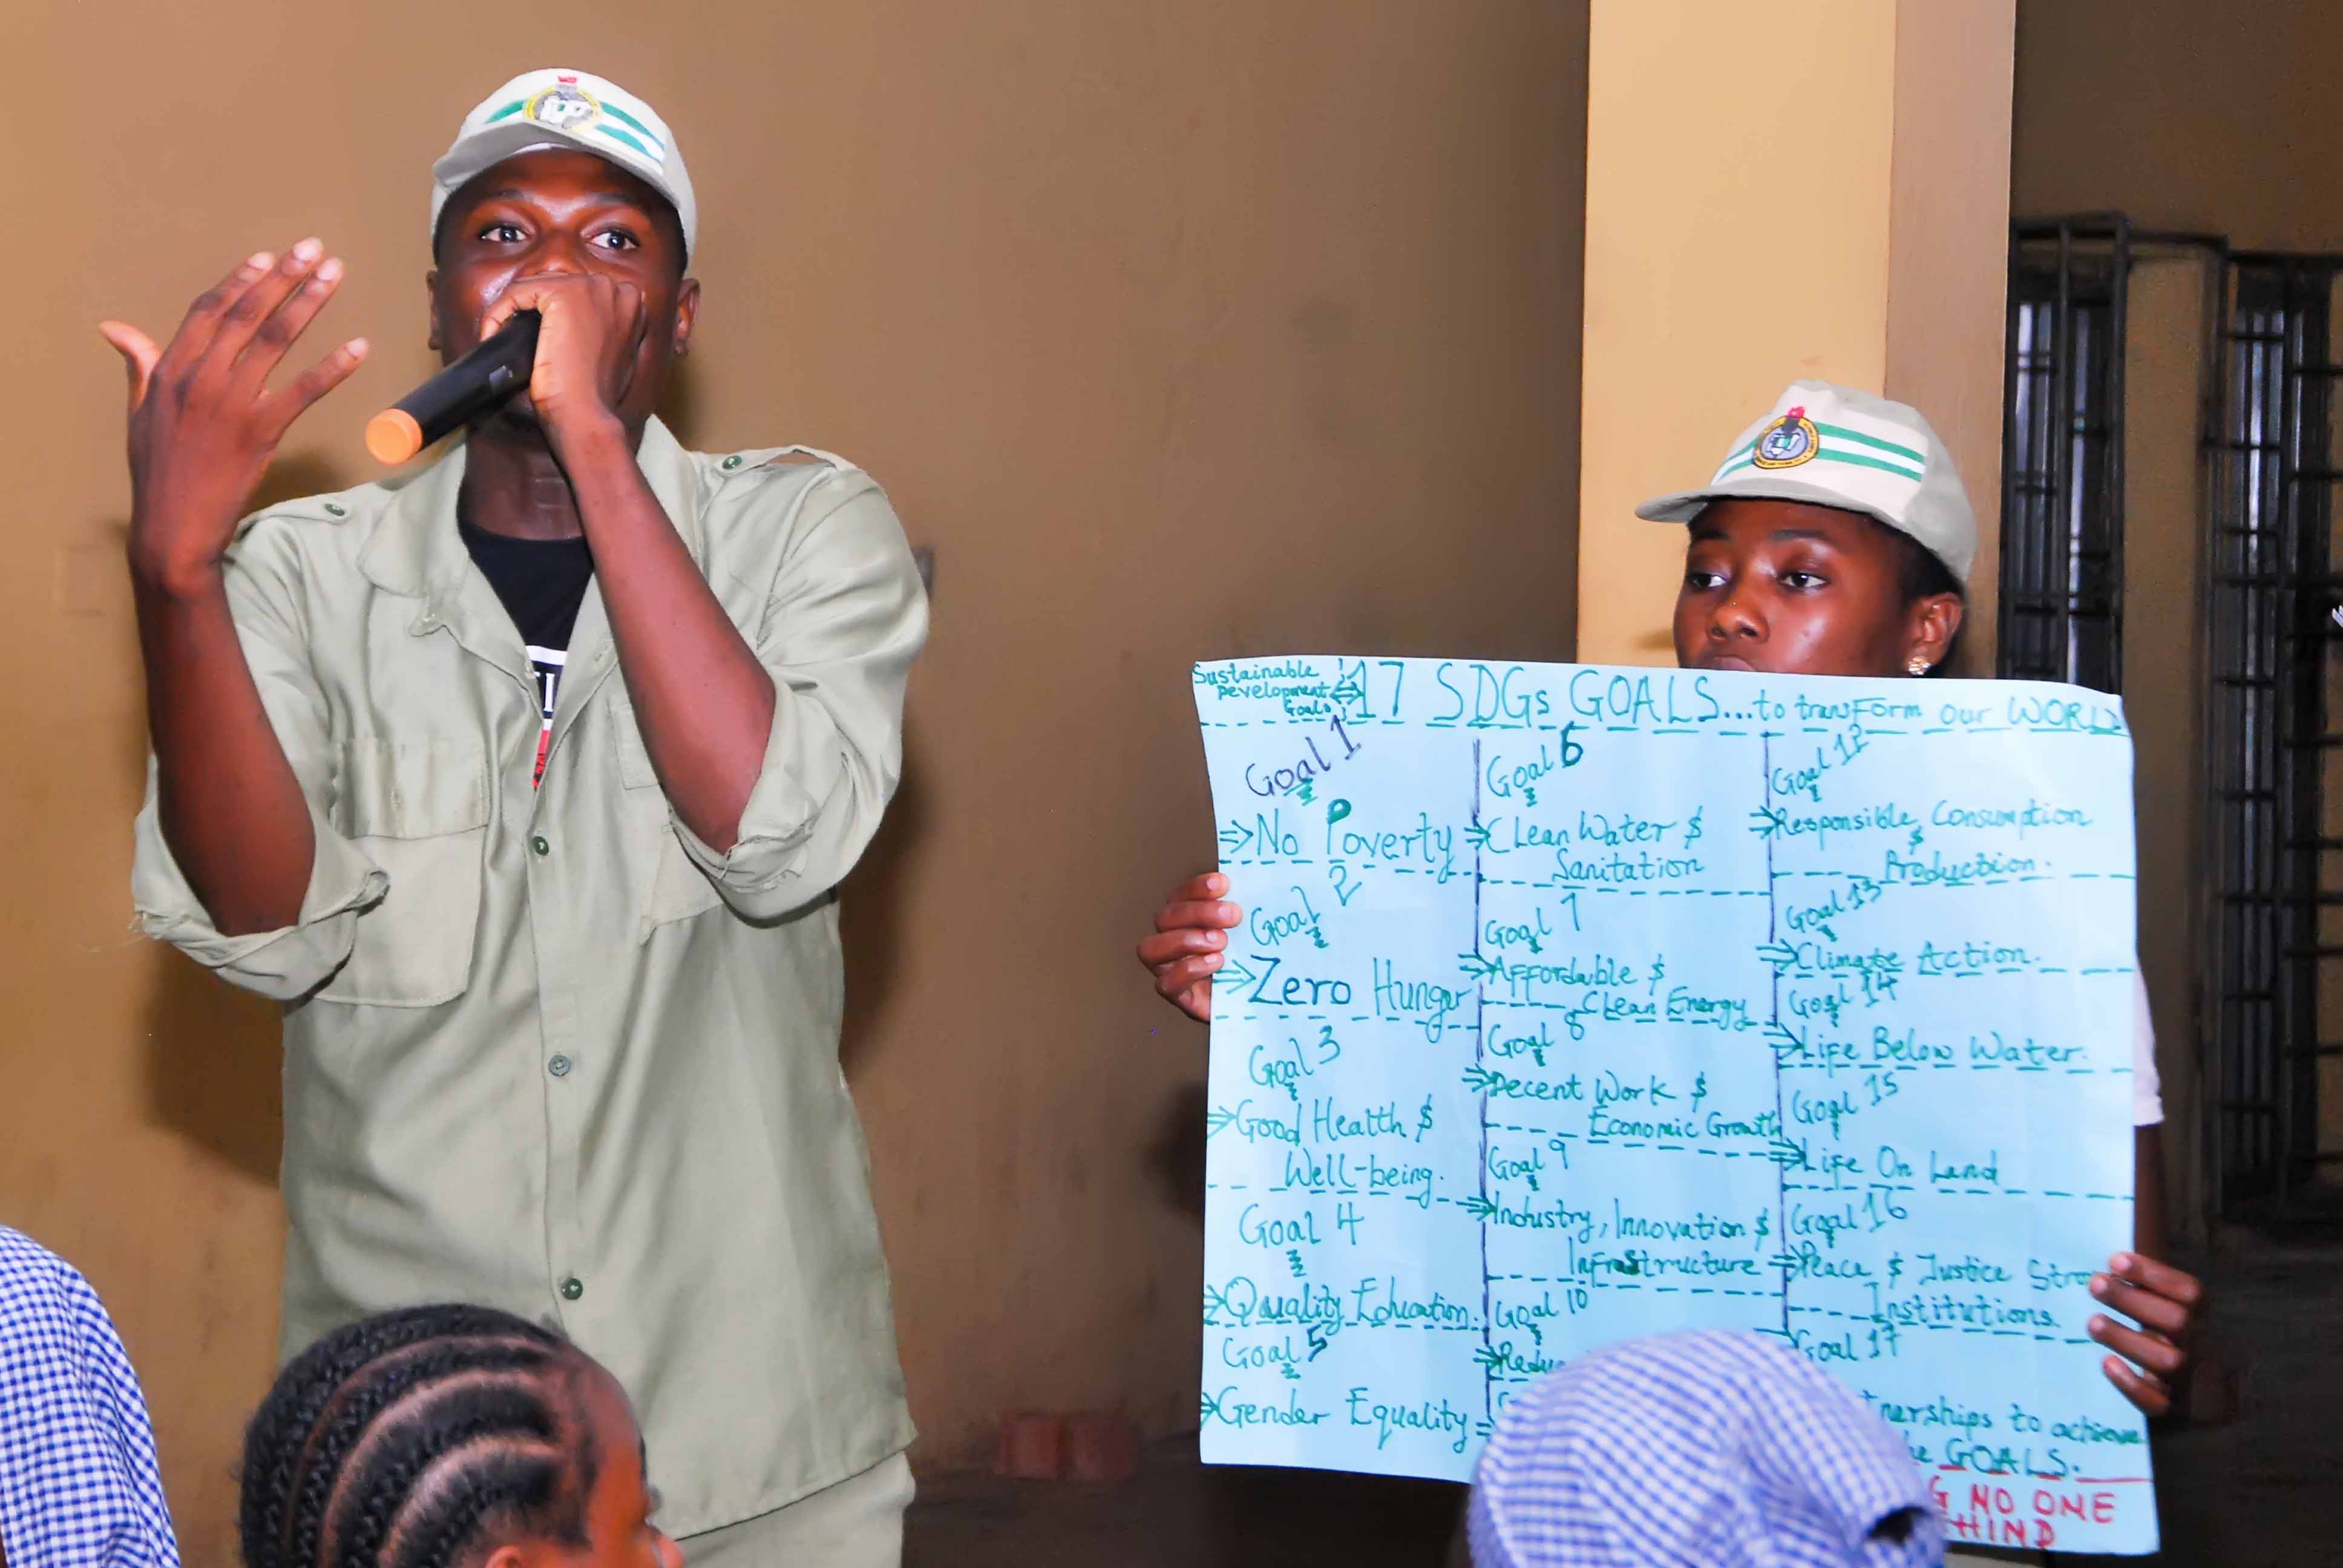 Sustainable
Development
Goals
17 SDGs GOALS...to transform our WORLD
Goal 1
⇒No Poverty
Goal 2
⇒Zero Hunger
Goal 3
⇒Good Health &
Well-being.
Goal 4
⇒Quality Education.
Goal 5
⇒Gender Equality
Goal 6
⇒Clean Water &
Sanitation
Goal 7
⇒Affordable &
Clean Energy
Goal 8
⇒Decent Work &
Economic Growth
Goal 9
⇒Industry, Innovation &
Infrastructure
Goal 10
Goal 12
⇒Responsible Consumption
&
Production.
Goal 13
⇒Climate Action.
Goal 14
⇒Life Below Water.
Goal 15
⇒Life On Land
Goal 16
⇒Peace & Justice
Institutions.
Goal 17
to achieve
GOALS.
NO ONE